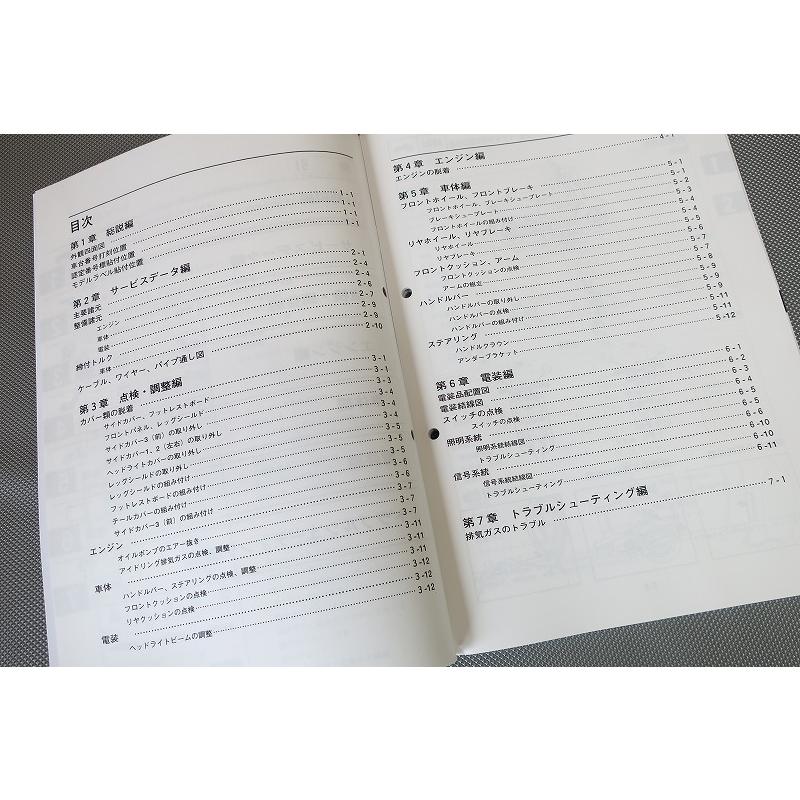 目次
第1章 総説編
外観四面図 1-1
車台番号打刻位置 1-1
認定番号標貼付位置 1-1
モデルラベル貼付位置 1-1
第2章 サービスデータ編
主要諸元 2-1
整備諸元 2-4
エンジン 2-4
車体 2-6
電装 2-7
締付トルク 2-9
車体 2-9
ケーブル、ワイヤー、パイプ通し図 2-10
第3章 点検・調整編
カバー類の脱着 3-1
サイドカバー、フットレストボード 3-1
フロントパネル、レッグシールド 3-3
サイドカバー3(前)の取り外し 3-4
サイドカバー1、2(左右)の取り外し 3-4
ヘッドライトカバーの取り外し 3-5
レッグシールドの取り外し 3-5
レッグシールドの組み付け 3-5
フットレストボードの組み付け 3-6
テールカバーの組み付け 3-6
サイドカバー3(前)の組み付け 3-7
エンジン 3-7
オイルポンプのエアー抜き 3-7
アイドリング排気ガスの点検、調整
車体 3-11
ハンドルバー、ステアリングの点検、調整 3-11
フロントクッションの点検 3-12
リヤクッションの点検 3-12
電装 3-12
ヘッドライトビームの調整 3-12
第4章 エンジン編
エンジンの脱着 4-1
第5章 車体編
フロントホイール、フロントブレーキ 5-1
フロントホイール、ブレーキシュープレート 5-1
ブレーキシュープレート 5-2
フロントホイールの組み付け 5-3
リヤホイール、リヤブレーキ 5-4
リヤホイール 5-4
リヤブレーキ 5-5
フロントクッション、アーム 5-6
フロントクッションの点検 5-7
アームの組立 5-8
ハンドルバー 5-9
ハンドルバーの取り外し 5-9
ハンドルバーの点検 5-9
ハンドルバーの組み付け 5-9
ステアリング 5-11
ハンドルクラウン 5-11
アンダーブラケット 5-12
第6章 電装編
電装品配置図 6-1
電装結線図 6-2
スイッチの点検 6-3
スイッチの点検 6-4
照明系統 6-5
照明系統結線図 6-5
トラブルシューティング 6-6
信号系統 6-10
信号系統結線図 6-10
トラブルシューティング 6-11
第7章 トラブルシューティング編
排気ガスのトラブル 7-1